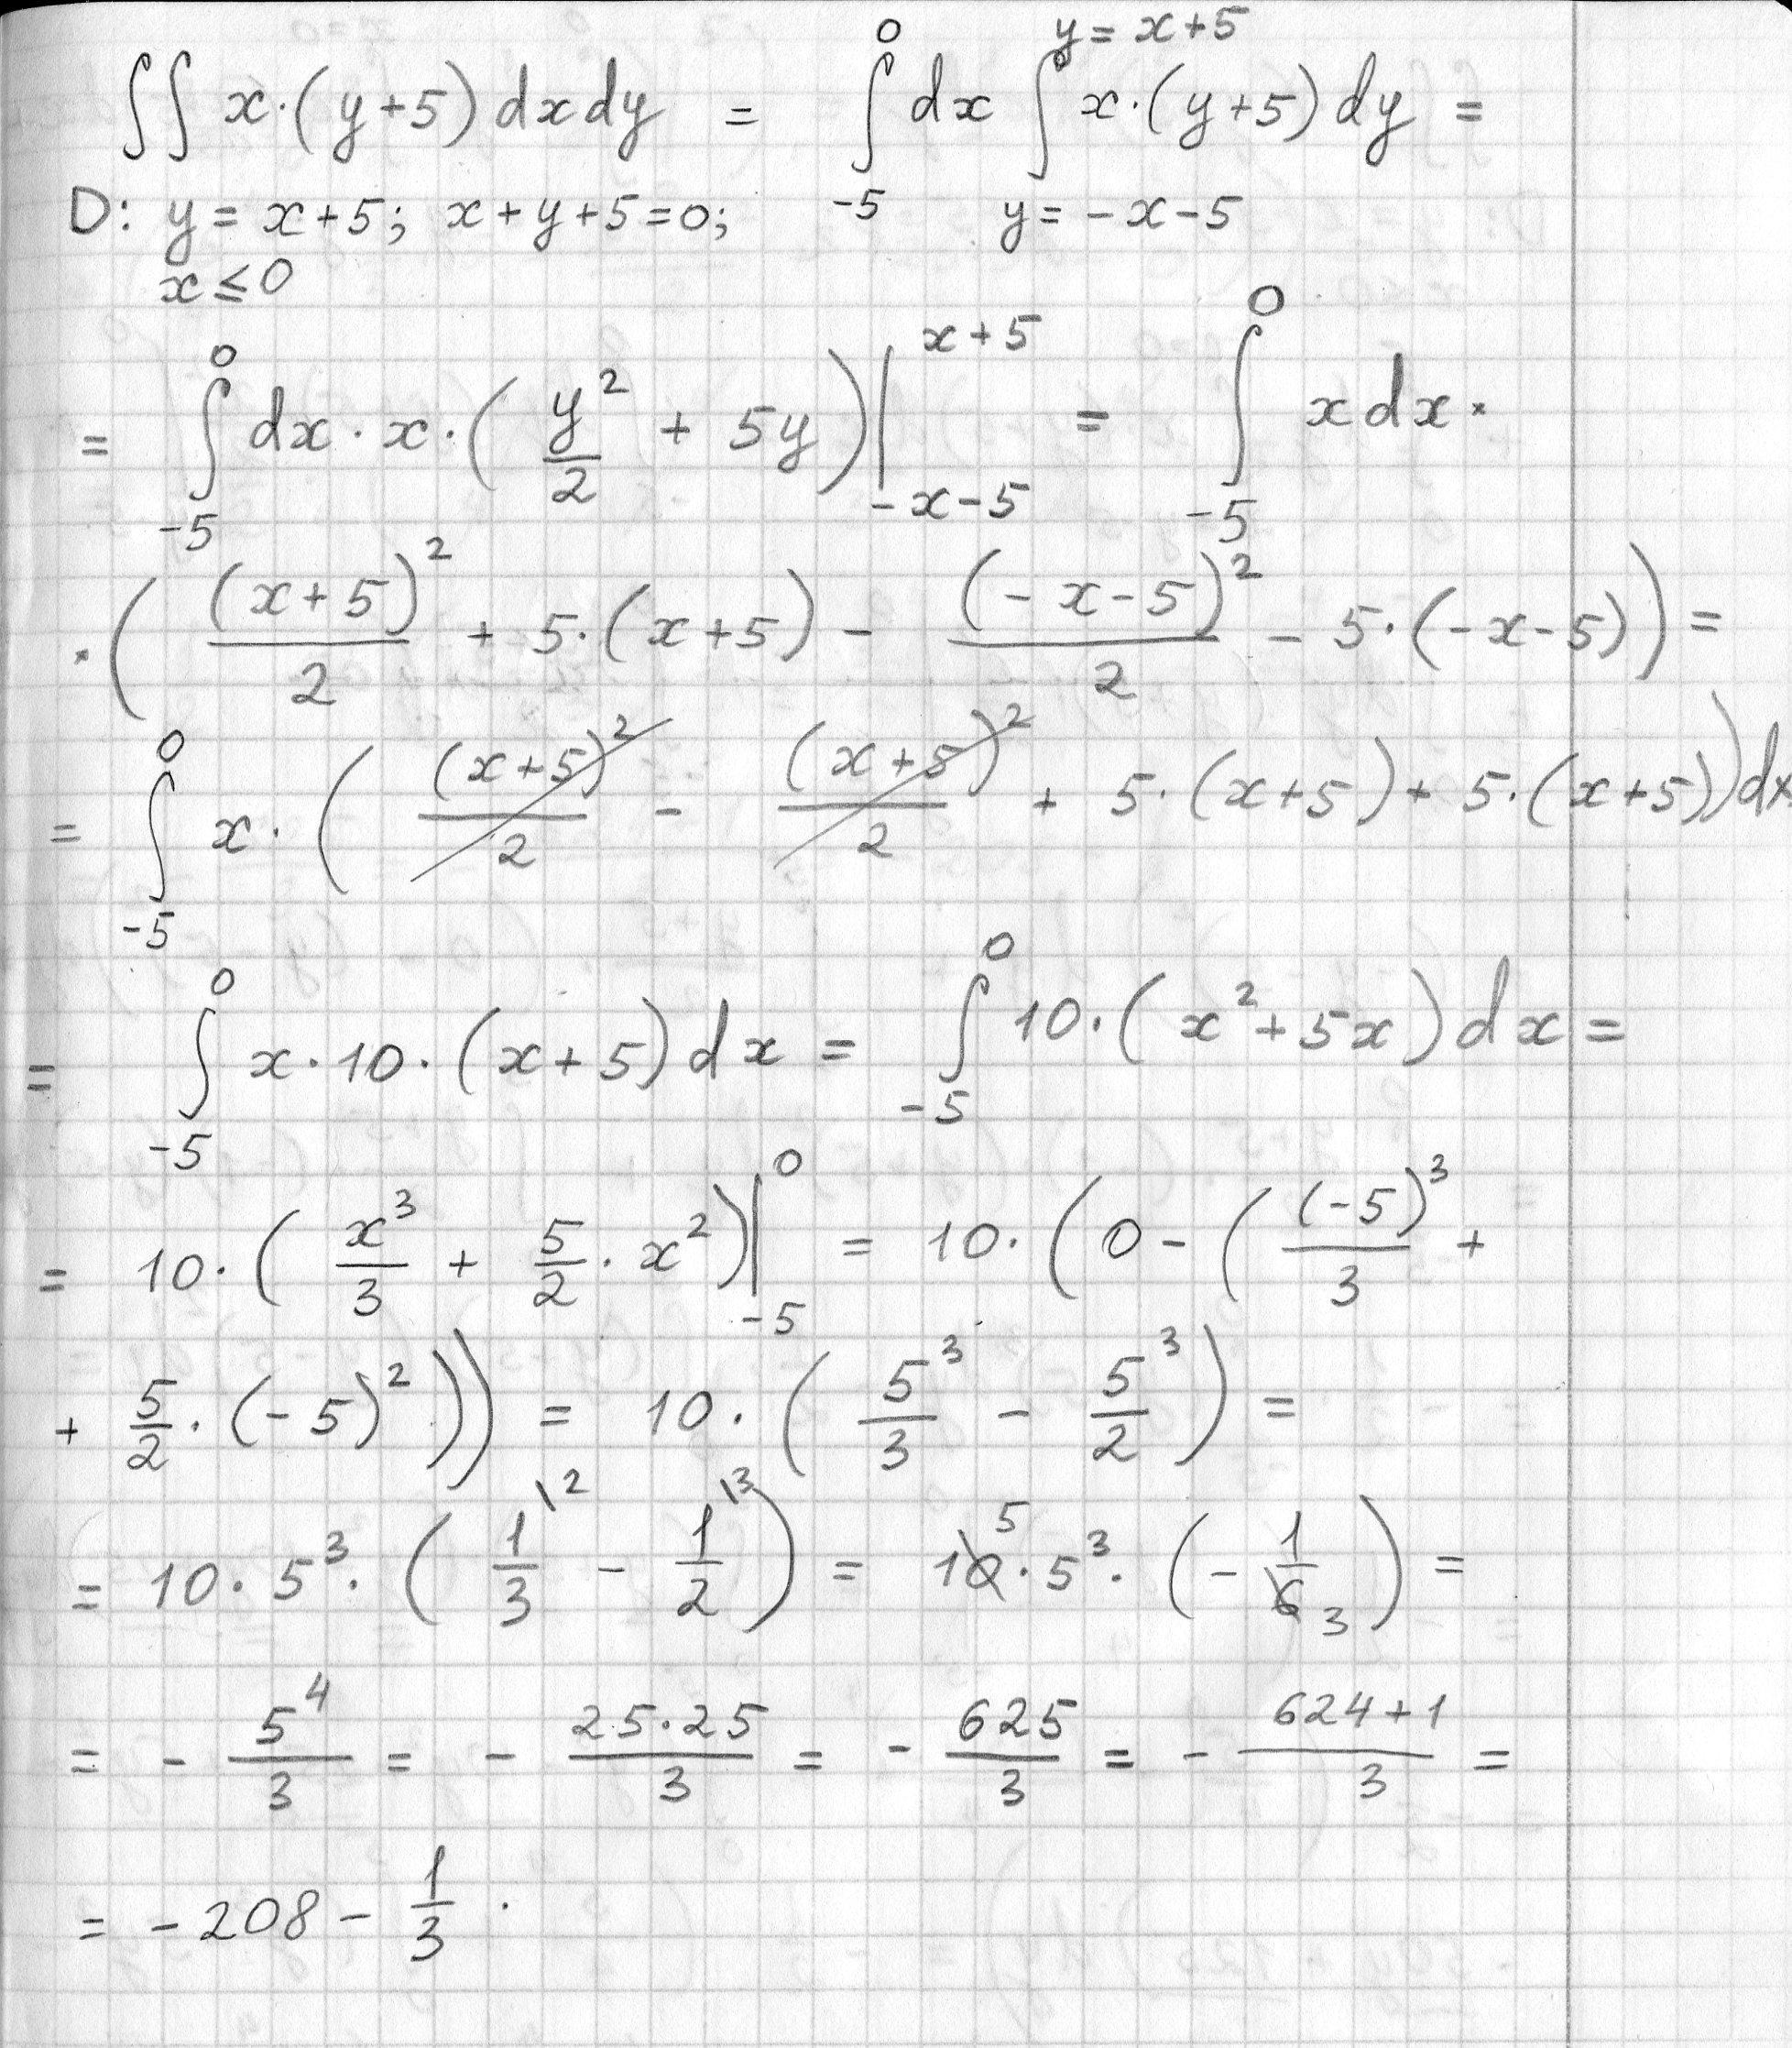 ∫∫ x·(y+5) dx dy = ∫_{-5}^{0} dx ∫_{y=-x-5}^{y=x+5} x·(y+5) dy =
D: y = x+5; x+y+5=0;
x ≤ 0
= ∫_{-5}^{0} dx · x · ( y^2/2 + 5y ) |_{-x-5}^{x+5} = ∫_{-5}^{0} x dx ·
· ( (x+5)^2/2 + 5·(x+5) - (-x-5)^2/2 - 5·(-x-5) ) =
= ∫_{-5}^{0} x · ( (x+5)^2/2 - (x+5)^2/2 + 5·(x+5) + 5·(x+5) ) dx
= ∫_{-5}^{0} x·10·(x+5) dx = ∫_{-5}^{0} 10·(x^2+5x) dx =
= 10·( x^3/3 + 5/2 · x^2 ) |_{-5}^{0} = 10·( 0 - ( (-5)^3/3 +
+ 5/2 · (-5)^2 )) = 10·( 5^3/3 - 5^3/2 ) =
= 10·5^3·( 1/3 \2 - 1/2 \3 ) = 10 5 ·5^3·( - 1/6 3 ) =
= - 5^4/3 = - 25·25/3 = - 625/3 = - 624+1/3 =
= -208 - 1/3 .